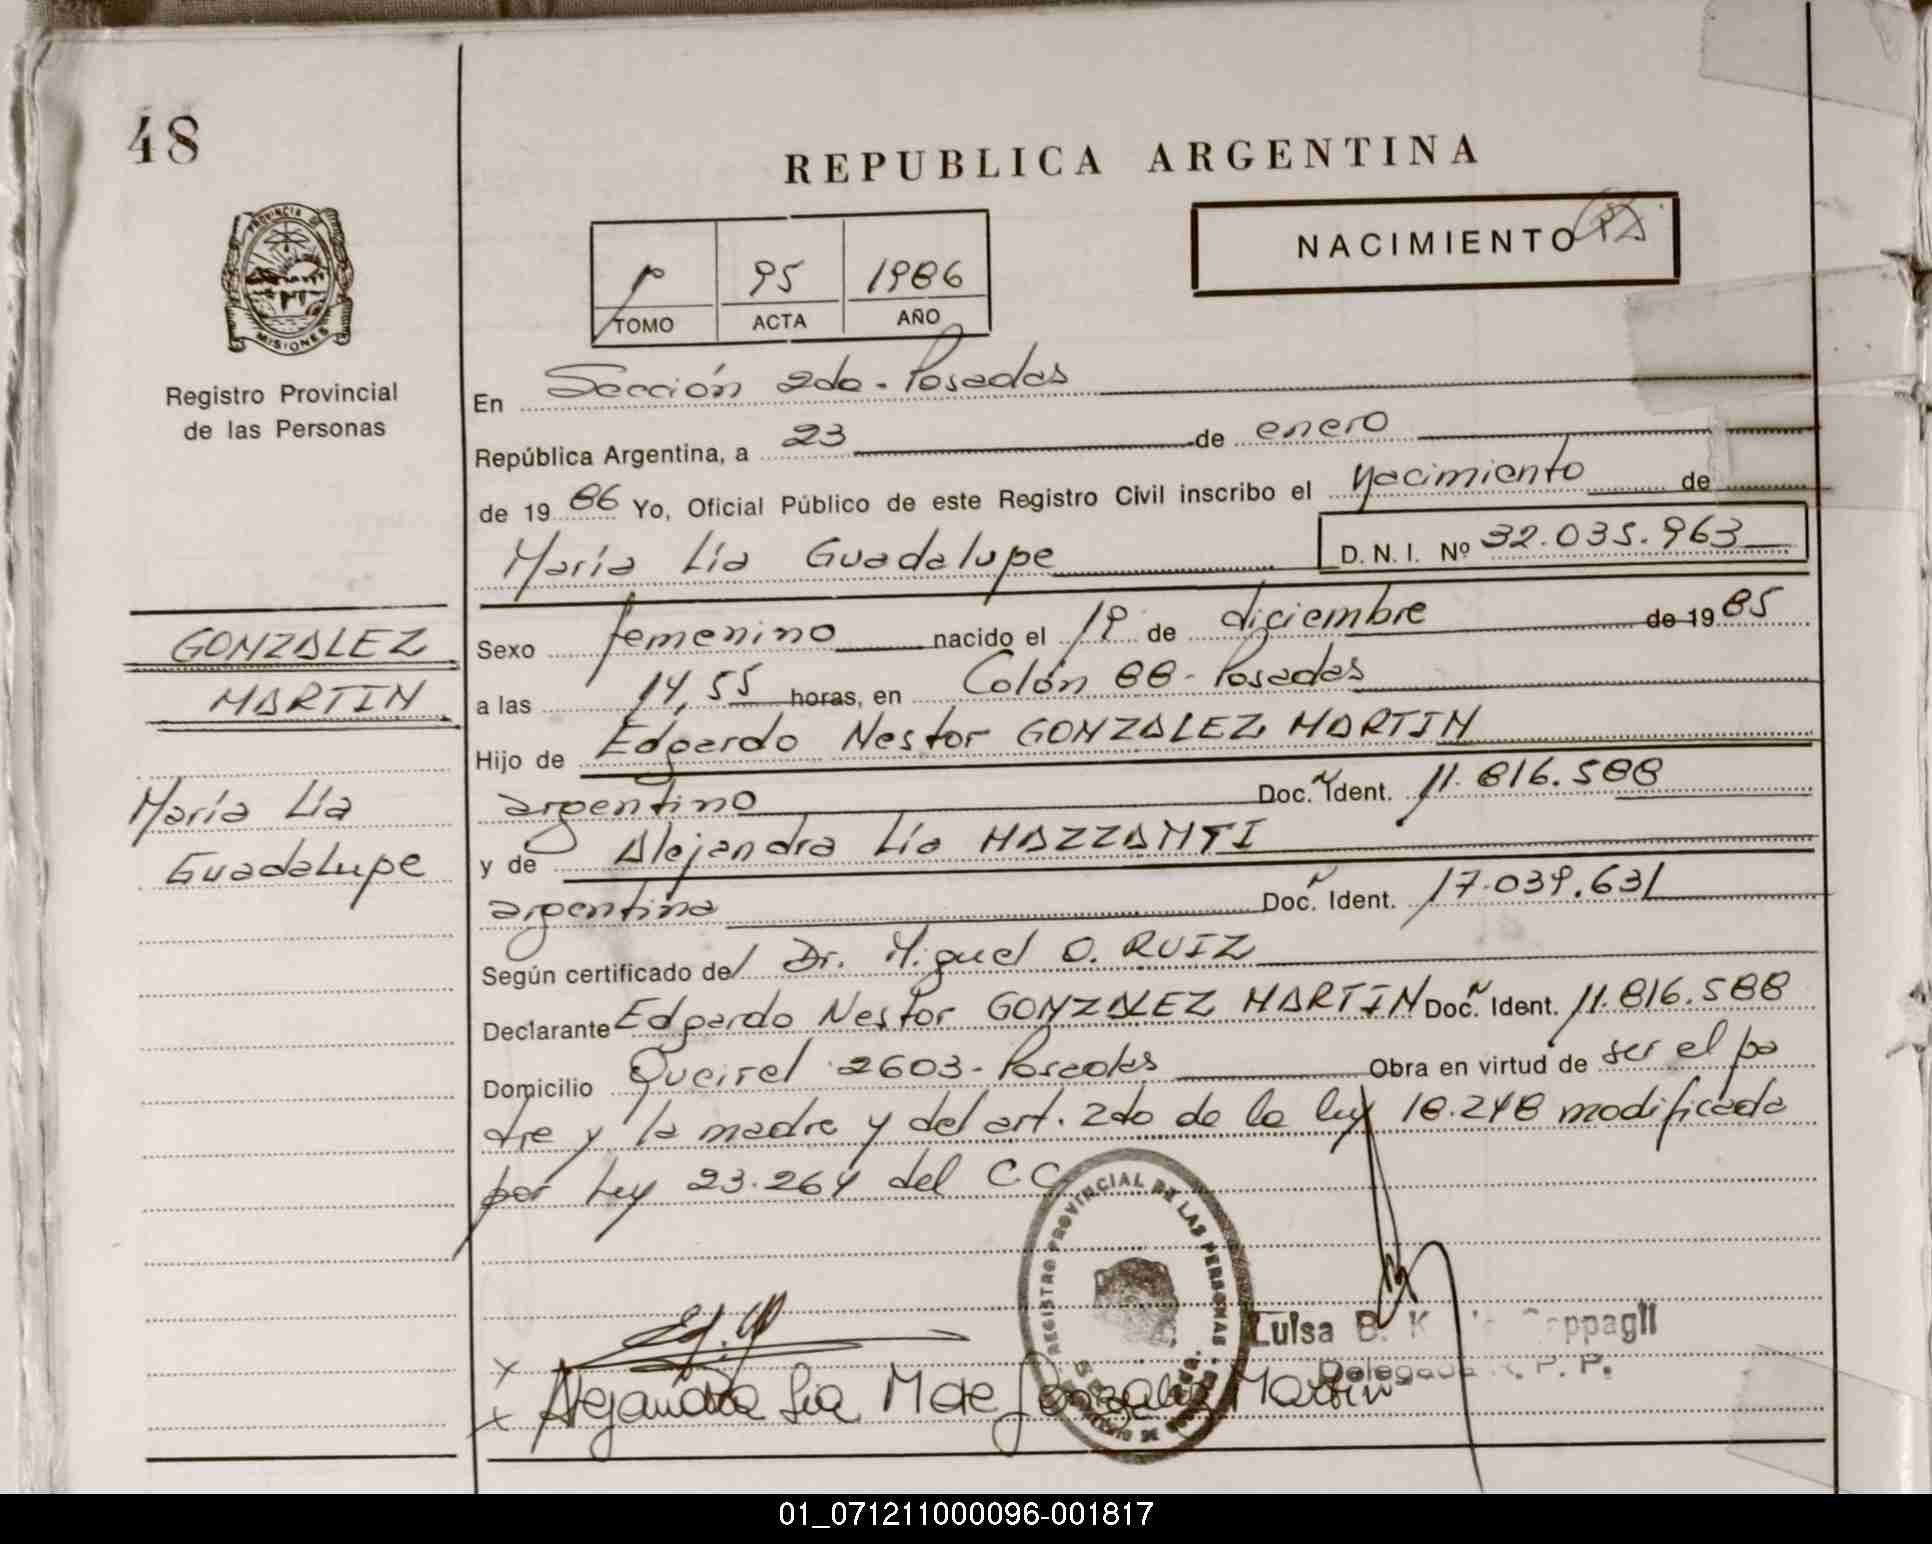 48
REPUBLICA ARGENTINA
PROVINCIA DE
MISIONES
Registro Provincial
de las Personas
P 95 1986
TOMO ACTA AÑO
NACIMIENTO
En Sección 2da - Posadas
República Argentina, a 23 de enero
de 19 86 Yo, Oficial Público de este Registro Civil inscribo el Nacimiento de
María Lía Guadalupe D. N. I. Nº 32.035.963
GONZALEZ
MARTIN
María Lía
Guadalupe
Sexo femenino nacido el 19 de diciembre de 19 85
a las 14,55 horas, en Colón 88 - Posadas
Hijo de Edgardo Nestor GONZALEZ MARTIN
argentino Doc. Ident. 11.816.588
y de Alejandra Lía MAZZANTI
argentina Doc. Ident. 17.039.631
Según certificado del Dr. Miguel O. RUIZ
Declarante Edgardo Nestor GONZALEZ MARTIN Doc. Ident. 11.816.588
Domicilio Queirel 2603 - Posadas Obra en virtud de ser el pa
dre y la madre y del art. 2do de la ley 18.248 modificada
por Ley 23.264 del CC
REGISTRO PROVINCIAL DE LAS PERSONAS
Luisa B. K
Delegada R. P. P.
x
x Alejandra Lia M de Gonzalez Martin
01_071211000096-001817